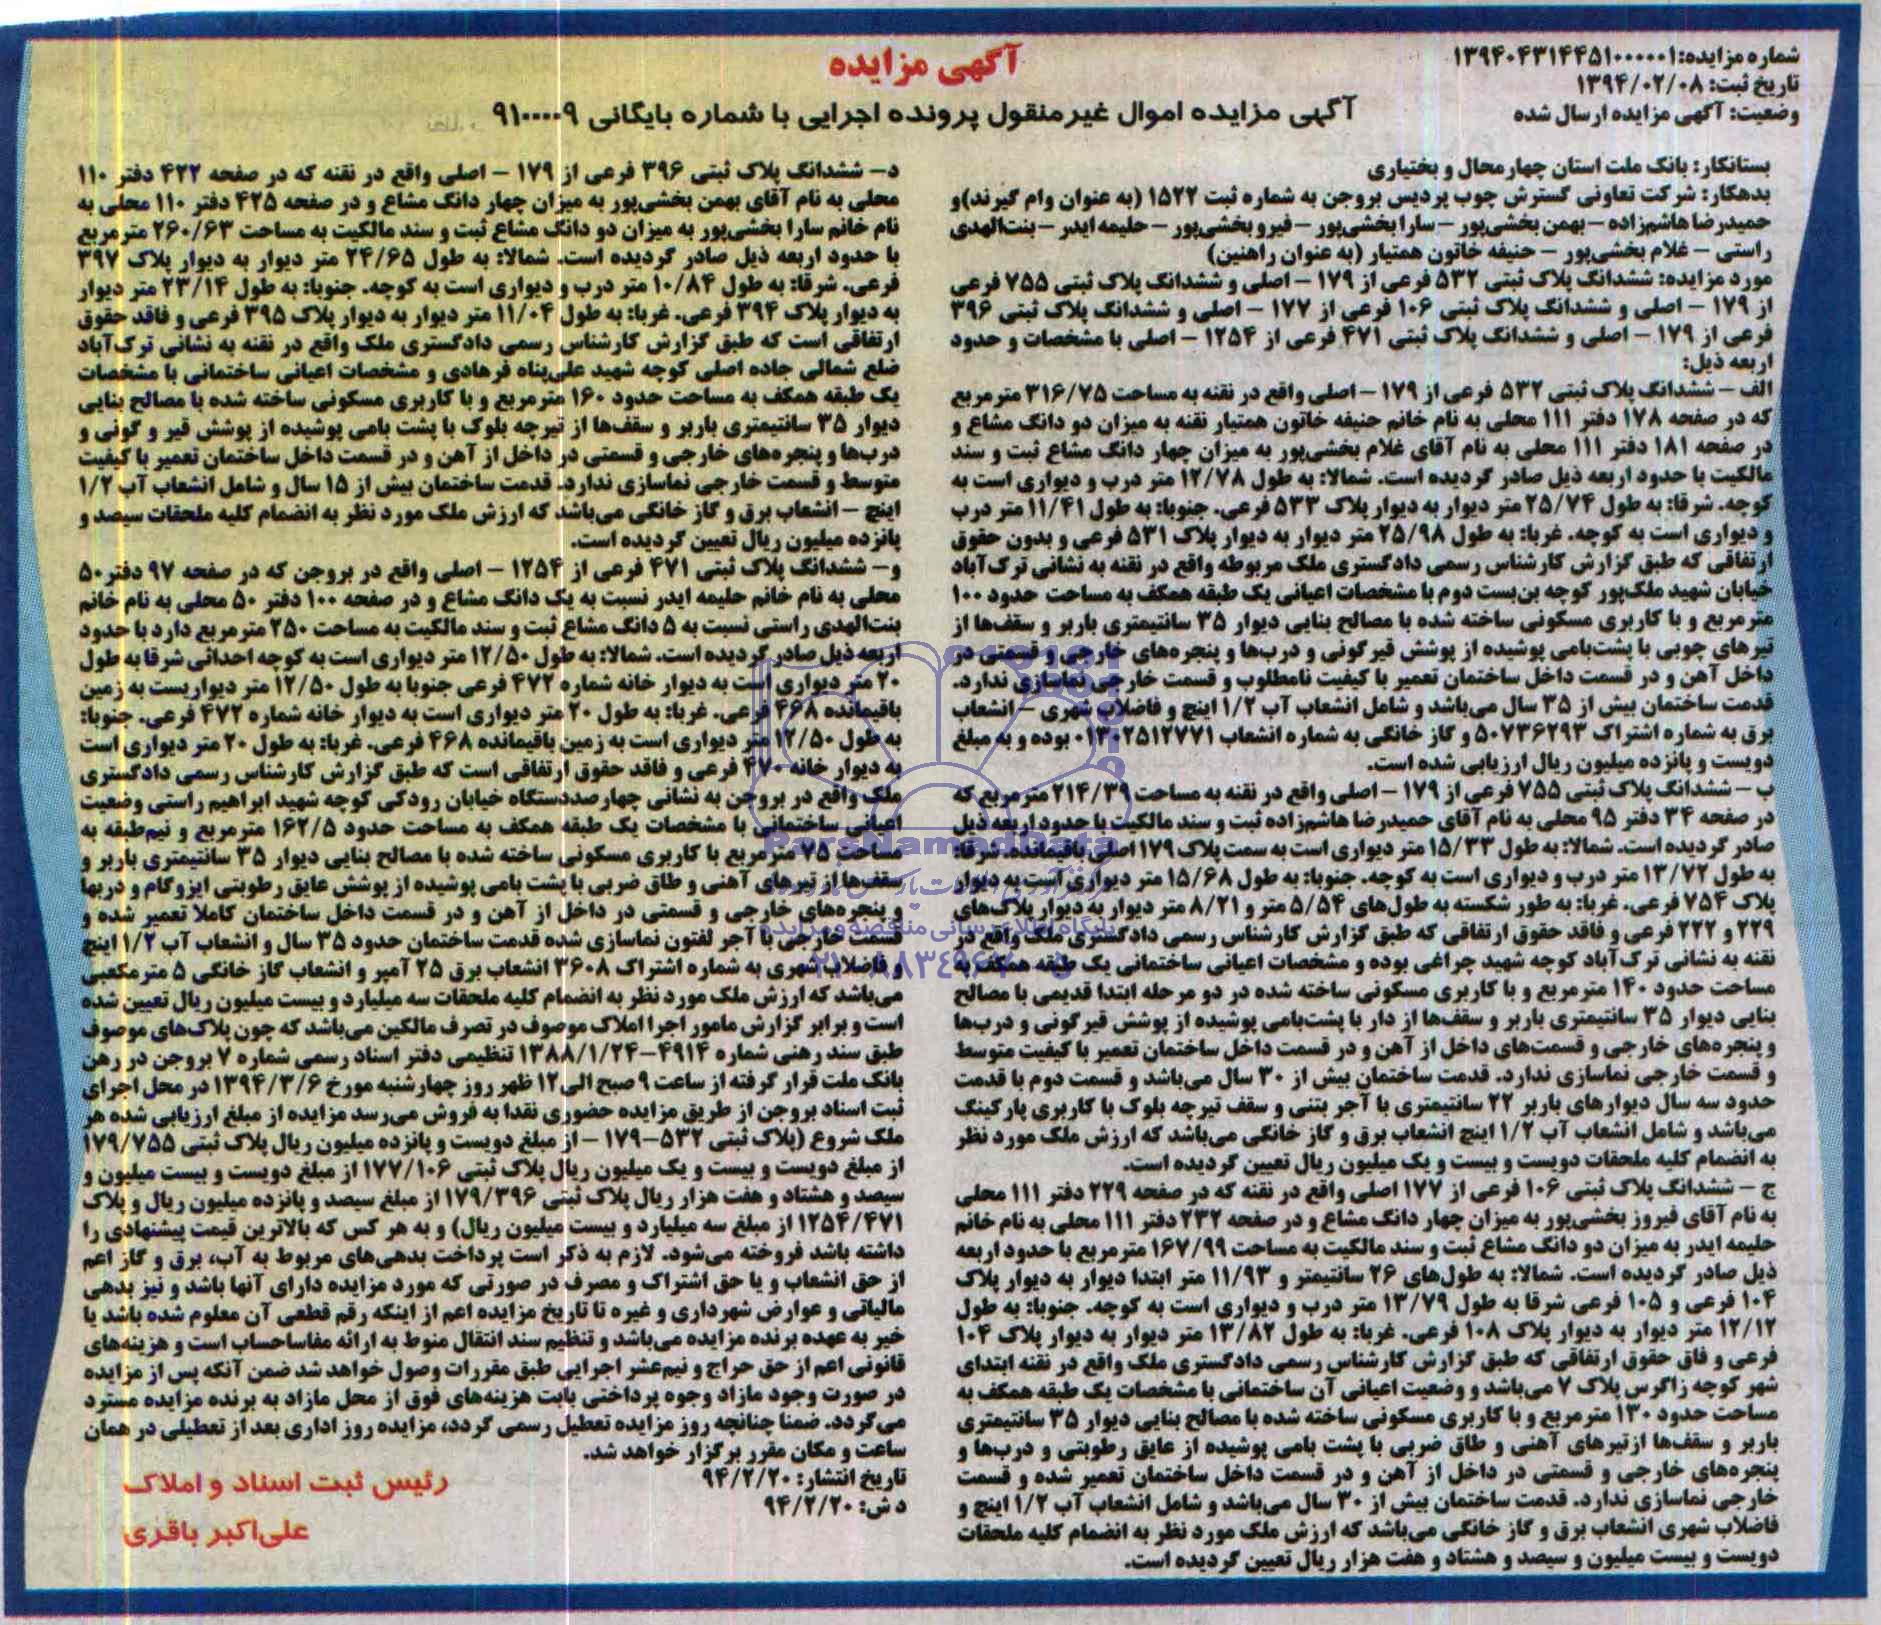 شماره مزایده: ۱۳۹۴۰۴۳۱۴۴۵۱۰۰۰۰۰۱
تاریخ ثبت: ۱۳۹۴/۰۲/۰۸
وضعیت: آگهی مزایده ارسال شده
آگهی مزایده
آگهی مزایده اموال غیرمنقول پرونده اجرایی با شماره بایگانی ۹۱۰۰۰۰۹
بستانکار: بانک ملت استان چهارمحال و بختیاری
بدهکار: شرکت تعاونی گسترش چوب پردیس بروجن به شماره ثبت ۱۵۲۲ (به عنوان وام گیرند) و
حمیدرضا هاشم‌زاده – بهمن بخشی‌پور – سارا بخشی‌پور – فیرو بخشی‌پور – حلیمه ایدر – بنت‌الهدی
راستی – غلام بخشی‌پور – حنیفه خاتون همتیار (به عنوان راهنین)
مورد مزایده: ششدانگ پلاک ثبتی ۵۳۲ فرعی از ۱۷۹ – اصلی و ششدانگ پلاک ثبتی ۷۵۵ فرعی
از ۱۷۹ – اصلی و ششدانگ پلاک ثبتی ۱۰۶ فرعی از ۱۷۷ – اصلی و ششدانگ پلاک ثبتی ۳۹۶
فرعی از ۱۷۹ – اصلی و ششدانگ پلاک ثبتی ۴۷۱ فرعی از ۱۲۵۴ – اصلی با مشخصات و حدود
اربعه ذیل:
الف – ششدانگ پلاک ثبتی ۵۳۲ فرعی از ۱۷۹ – اصلی واقع در نقنه به مساحت ۳۱۶/۷۵ مترمربع
که در صفحه ۱۷۸ دفتر ۱۱۱ محلی به نام خانم حنیفه خاتون همتیار نقنه به میزان دو دانگ مشاع و
در صفحه ۱۸۱ دفتر ۱۱۱ محلی به نام آقای غلام بخشی‌پور به میزان چهار دانگ مشاع ثبت و سند
مالکیت با حدود اربعه ذیل صادر گردیده است. شمالا: به طول ۱۲/۷۸ متر درب و دیواری است به
کوچه. شرقا: به طول ۲۵/۷۴ متر دیوار به دیوار پلاک ۵۳۳ فرعی. جنوبا: به طول ۱۱/۴۱ متر درب
و دیواری است به کوچه. غربا: به طول ۲۵/۹۸ متر دیوار به دیوار پلاک ۵۳۱ فرعی و بدون حقوق
ارتفاقی که طبق گزارش کارشناس رسمی دادگستری ملک مربوطه واقع در نقنه به نشانی ترک‌آباد
خیابان شهید ملک‌پور کوچه بن‌بست دوم با مشخصات اعیانی یک طبقه همکف به مساحت حدود ۱۰۰
مترمربع و با کاربری مسکونی ساخته شده با مصالح بنایی دیوار ۳۵ سانتیمتری باربر و سقف‌ها از
تیرهای چوبی با پشت‌بامی پوشیده از پوشش قیرگونی و درب‌ها و پنجره‌های خارجی و قسمتی در
داخل آهن و در قسمت داخل ساختمان تعمیر با کیفیت نامطلوب و قسمت خارجی نماسازی ندارد.
قدمت ساختمان بیش از ۳۵ سال می‌باشد و شامل انشعاب آب ۱/۲ اینچ و فاضلاب شهری – انشعاب
برق به شماره اشتراک ۵۰۷۳۶۲۹۳ و گاز خانگی به شماره انشعاب ۰۱۳۰۲۵۱۲۷۷۱ بوده و به مبلغ
دویست و پانزده میلیون ریال ارزیابی شده است.
ب – ششدانگ پلاک ثبتی ۷۵۵ فرعی از ۱۷۹ – اصلی واقع در نقنه به مساحت ۲۱۴/۳۹ مترمربع که
در صفحه ۳۴ دفتر ۹۵ محلی به نام آقای حمیدرضا هاشم‌زاده ثبت و سند مالکیت با حدود اربعه ذیل
صادر گردیده است. شمالا: به طول ۱۵/۳۳ متر دیواری است به سمت پلاک ۱۷۹ اصلی باقیمانده. شرقا:
به طول ۱۳/۷۲ متر درب و دیواری است به کوچه. جنوبا: به طول ۱۵/۶۸ متر دیواری است به دیوار
پلاک ۷۵۴ فرعی. غربا: به طور شکسته به طول‌های ۵/۵۴ متر و ۸/۲۱ متر دیوار به دیوار پلاک‌های
۲۲۹ و ۲۲۲ فرعی و فاقد حقوق ارتفاقی که طبق گزارش کارشناس رسمی دادگستری ملک واقع در
نقنه به نشانی ترک‌آباد کوچه شهید چراغی بوده و مشخصات اعیانی ساختمانی یک طبقه همکف به
مساحت حدود ۱۴۰ مترمربع و با کاربری مسکونی ساخته شده در دو مرحله ابتدا قدیمی با مصالح
بنایی دیوار ۳۵ سانتیمتری باربر و سقف‌ها از دار با پشت‌بامی پوشیده از پوشش قیرگونی و درب‌ها
و پنجره‌های خارجی و قسمت‌های داخل از آهن و در قسمت داخل ساختمان تعمیر با کیفیت متوسط
و قسمت خارجی نماسازی ندارد. قدمت ساختمان بیش از ۳۰ سال می‌باشد و قسمت دوم با قدمت
حدود سه سال دیوارهای باربر ۲۲ سانتیمتری با آجر بتنی و سقف تیرچه بلوک با کاربری پارکینگ
می‌باشد و شامل انشعاب آب ۱/۲ اینچ انشعاب برق و گاز خانگی می‌باشد که ارزش ملک مورد نظر
به انضمام کلیه ملحقات دویست و بیست و یک میلیون ریال تعیین گردیده است.
ج – ششدانگ پلاک ثبتی ۱۰۶ فرعی از ۱۷۷ اصلی واقع در نقنه که در صفحه ۲۲۹ دفتر ۱۱۱ محلی
به نام آقای فیروز بخشی‌پور به میزان چهار دانگ مشاع و در صفحه ۲۳۲ دفتر ۱۱۱ محلی به نام خانم
حلیمه ایدر به میزان دو دانگ مشاع ثبت و سند مالکیت به مساحت ۱۶۷/۹۹ مترمربع با حدود اربعه
ذیل صادر گردیده است. شمالا: به طول‌های ۲۶ سانتیمتر و ۱۱/۹۳ متر ابتدا دیوار به دیوار پلاک
۱۰۴ فرعی و ۱۰۵ فرعی شرقا به طول ۱۳/۷۹ متر درب و دیواری است به کوچه. جنوبا: به طول
۱۲/۱۲ متر دیوار به دیوار پلاک ۱۰۸ فرعی. غربا: به طول ۱۳/۸۲ متر دیوار به دیوار پلاک ۱۰۴
فرعی و فاق حقوق ارتفاقی که طبق گزارش کارشناس رسمی دادگستری ملک واقع در نقنه ابتدای
شهر کوچه زاگرس پلاک ۷ می‌باشد و وضعیت اعیانی آن ساختمانی با مشخصات یک طبقه همکف به
مساحت حدود ۱۳۰ مترمربع و با کاربری مسکونی ساخته شده با مصالح بنایی دیوار ۳۵ سانتیمتری
باربر و سقف‌ها ازتیرهای آهنی و طاق ضربی با پشت بامی پوشیده از عایق رطوبتی و درب‌ها و
پنجره‌های خارجی و قسمتی در داخل از آهن و در قسمت داخل ساختمان تعمیر شده و قسمت
خارجی نماسازی ندارد. قدمت ساختمان بیش از ۳۰ سال می‌باشد و شامل انشعاب آب ۱/۲ اینچ و
فاضلاب شهری انشعاب برق و گاز خانگی می‌باشد که ارزش ملک مورد نظر به انضمام کلیه ملحقات
دویست و بیست میلیون و سیصد و هشتاد و هفت هزار ریال تعیین گردیده است.
د– ششدانگ پلاک ثبتی ۳۹۶ فرعی از ۱۷۹ – اصلی واقع در نقنه که در صفحه ۴۲۲ دفتر ۱۱۰
محلی به نام آقای بهمن بخشی‌پور به میزان چهار دانگ مشاع و در صفحه ۴۲۵ دفتر ۱۱۰ محلی به
نام خانم سارا بخشی‌پور به میزان دو دانگ مشاع ثبت و سند مالکیت به مساحت ۲۶۰/۶۳ مترمربع
با حدود اربعه ذیل صادر گردیده است. شمالا: به طول ۲۴/۶۵ متر دیوار به دیوار پلاک ۳۹۷
فرعی. شرقا: به طول ۱۰/۸۴ متر درب و دیواری است به کوچه. جنوبا: به طول ۲۳/۱۴ متر دیوار
به دیوار پلاک ۳۹۴ فرعی. غربا: به طول ۱۱/۰۴ متر دیوار به دیوار پلاک ۳۹۵ فرعی و فاقد حقوق
ارتفاقی است که طبق گزارش کارشناس رسمی دادگستری ملک واقع در نقنه به نشانی ترک‌آباد
ضلع شمالی جاده اصلی کوچه شهید علی‌پناه فرهادی و مشخصات اعیانی ساختمانی با مشخصات
یک طبقه همکف به مساحت حدود ۱۶۰ مترمربع و با کاربری مسکونی ساخته شده با مصالح بنایی
دیوار ۳۵ سانتیمتری باربر و سقف‌ها از تیرچه بلوک با پشت بامی پوشیده از پوشش قیر و گونی و
درب‌ها و پنجره‌های خارجی و قسمتی در داخل از آهن و در قسمت داخل ساختمان تعمیر با کیفیت
متوسط و قسمت خارجی نماسازی ندارد. قدمت ساختمان بیش از ۱۵ سال و شامل انشعاب آب ۱/۲
اینچ – انشعاب برق و گاز خانگی می‌باشد که ارزش ملک مورد نظر به انضمام کلیه ملحقات سیصد و
پانزده میلیون ریال تعیین گردیده است.
و– ششدانگ پلاک ثبتی ۴۷۱ فرعی از ۱۲۵۴ – اصلی واقع در بروجن که در صفحه ۹۷ دفتر ۵۰
محلی به نام خانم حلیمه ایدر نسبت به یک دانگ مشاع و در صفحه ۱۰۰ دفتر ۵۰ محلی به نام خانم
بنت‌الهدی راستی نسبت به ۵ دانگ مشاع ثبت و سند مالکیت به مساحت ۲۵۰ مترمربع دارد با حدود
اربعه ذیل صادر گردیده است. شمالا: به طول ۱۲/۵۰ متر دیواری است به کوچه احداثی شرقا به طول
۲۰ متر دیواری است به دیوار خانه شماره ۴۷۲ فرعی جنوبا به طول ۱۲/۵۰ متر دیواریست به زمین
باقیمانده ۴۶۸ فرعی. غربا: به طول ۲۰ متر دیواری است به دیوار خانه شماره ۴۷۲ فرعی. جنوبا:
به طول ۱۲/۵۰ متر دیواری است به زمین باقیمانده ۴۶۸ فرعی. غربا: به طول ۲۰ متر دیواری است
به دیوار خانه ۴۷۰ فرعی و فاقد حقوق ارتفاقی است که طبق گزارش کارشناس رسمی دادگستری
ملک واقع در بروجن به نشانی چهارصددستگاه خیابان رودکی کوچه شهید ابراهیم راستی وضعیت
اعیانی ساختمانی با مشخصات یک طبقه همکف به مساحت حدود ۱۶۲/۵ مترمربع و نیم‌طبقه به
مساحت ۷۵ مترمربع با کاربری مسکونی ساخته شده با مصالح بنایی دیوار ۳۵ سانتیمتری باربر و
سقف‌ها از تیرهای آهنی و طاق ضربی با پشت بامی پوشیده از پوشش عایق رطوبتی ایزوگام و دربها
و پنجره‌های خارجی و قسمتی در داخل از آهن و در قسمت داخل ساختمان کاملا تعمیر شده و
قسمت خارجی با آجر لفتون نماسازی شده قدمت ساختمان حدود ۳۵ سال و انشعاب آب ۱/۲ اینچ
و فاضلاب شهری به شماره اشتراک ۳۶۰۸ انشعاب برق ۲۵ آمپر و انشعاب گاز خانگی ۵ مترمکعبی
می‌باشد که ارزش ملک مورد نظر به انضمام کلیه ملحقات سه میلیارد و بیست میلیون ریال تعیین شده
است و برابر گزارش مامور اجرا املاک موصوف در تصرف مالکین می‌باشد که چون پلاک‌های موصوف
طبق سند رهنی شماره ۴۹۱۴–۱۳۸۸/۱/۲۴ تنظیمی دفتر اسناد رسمی شماره ۷ بروجن در رهن
بانک ملت قرار گرفته از ساعت ۹ صبح الی ۱۲ ظهر روز چهارشنبه مورخ ۱۳۹۴/۳/۶ در محل اجرای
ثبت اسناد بروجن از طریق مزایده حضوری نقدا به فروش می‌رسد مزایده از مبلغ ارزیابی شده هر
ملک شروع (پلاک ثبتی ۵۳۲–۱۷۹ – از مبلغ دویست و پانزده میلیون ریال پلاک ثبتی ۱۷۹/۷۵۵
از مبلغ دویست و بیست و یک میلیون ریال پلاک ثبتی ۱۷۷/۱۰۶ از مبلغ دویست و بیست میلیون و
سیصد و هشتاد و هفت هزار ریال پلاک ثبتی ۱۷۹/۳۹۶ از مبلغ سیصد و پانزده میلیون ریال و پلاک
۱۲۵۴/۴۷۱ از مبلغ سه میلیارد و بیست میلیون ریال) و به هر کس که بالاترین قیمت پیشنهادی را
داشته باشد فروخته می‌شود. لازم به ذکر است پرداخت بدهی‌های مربوط به آب، برق و گاز اعم
از حق انشعاب و یا حق اشتراک و مصرف در صورتی که مورد مزایده دارای آنها باشد و نیز بدهی
مالیاتی و عوارض شهرداری و غیره تا تاریخ مزایده اعم از اینکه رقم قطعی آن معلوم شده باشد یا
خیر به عهده برنده مزایده می‌باشد و تنظیم سند انتقال منوط به ارائه مفاساحساب است و هزینه‌های
قانونی اعم از حق حراج و نیم‌عشر اجرایی طبق مقررات وصول خواهد شد ضمن آنکه پس از مزایده
در صورت وجود مازاد وجوه پرداختی بابت هزینه‌های فوق از محل مازاد به برنده مزایده مسترد
می‌گردد. ضمنا چنانچه روز مزایده تعطیل رسمی گردد، مزایده روز اداری بعد از تعطیلی در همان
ساعت و مکان مقرر برگزار خواهد شد.
تاریخ انتشار: ۹۴/۲/۲۰
د ش: ۹۴/۲/۲۰
رئیس ثبت اسناد و املاک
علی‌اکبر باقری
ParsNamadData
پایگاه اطلاع رسانی مناقصه و مزایده